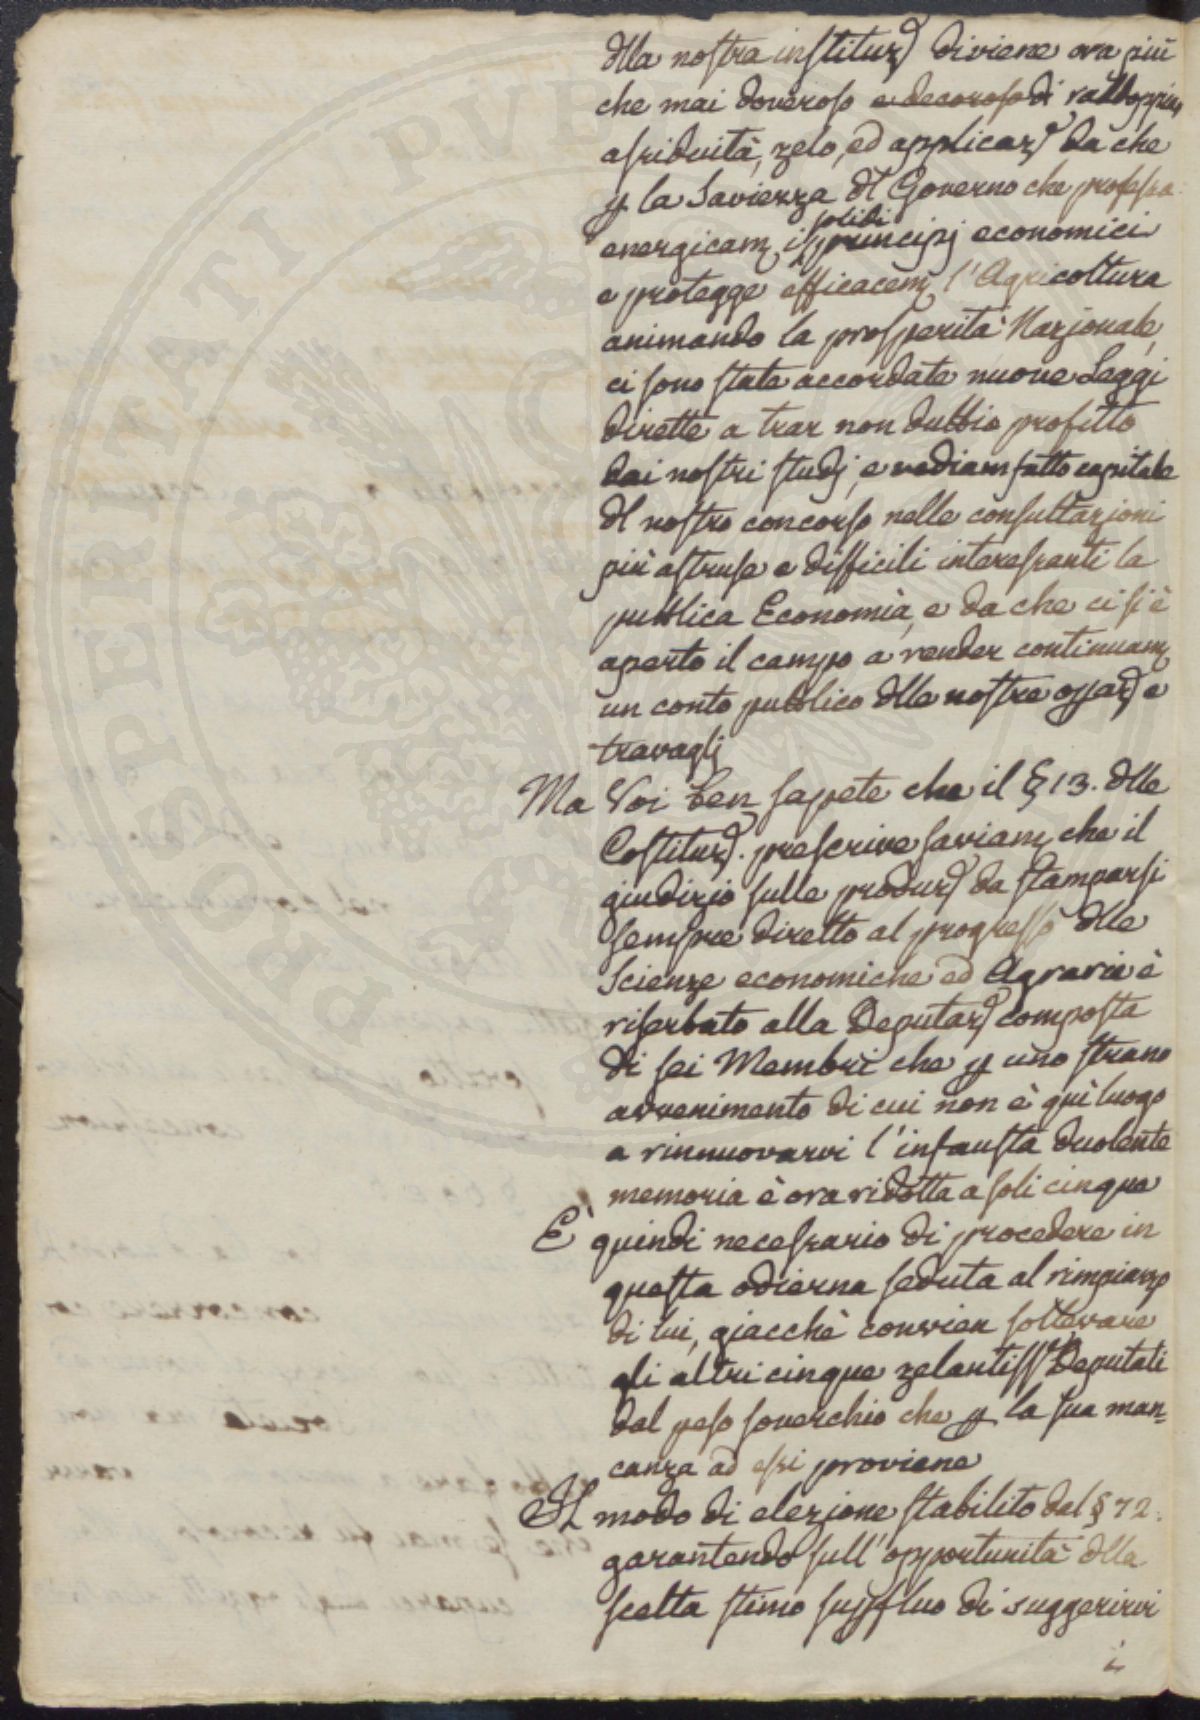 dlla nostra instituz.e diviene ora più
che mai doveroso e decoroso di raddoppiar
assiduità, zelo, ed applicaz.e da che
p la Saviezza dl Governo che professa
energicam.e i solidi principj economici
e protegge efficacem.e l'Agricoltura
animando la prosperità Nazionale,
ci sono state accordate nuove Leggi
dirette a trar non dubbio profitto
dai nostri studj, e vediam fatto capitale
dl nostro concorso nelle consultazioni
più astruse e difficili interessanti la
pubblica Economia, e da che ci si è
aperto il campo a render continuam.e
un conto pubblico dlle nostre opaz.e e
travaglj
Ma Voi ben sapete che il § 13. dlle
Costituz.e prescrive saviam.e che il
giudizio sulle produz.e da stamparsi
sempre diretto al progresso dlle
Scienze economiche ed Agrarie è
riserbato alla Deputaz.e composta
di sei Membri che p uno strano
avvenimento di cui non è quì luogo
a rinnuovarvi l'infausta duolente
memoria è ora ridotta a soli cinque
E' quindi necessario di procedere in
questa odierna seduta al rimpiazzo
di lui, giacchè convien sollevare
gli altri cinque zelantiss.i Deputati
dal peso soverchio che p la sua man=
canza ad essi proviene
Il modo di elezione stabilito dal § 72.
garantendo sull'opportunità dlla
scelta stimo supfluo di suggerirvi
i
PROSPERITATI PUB